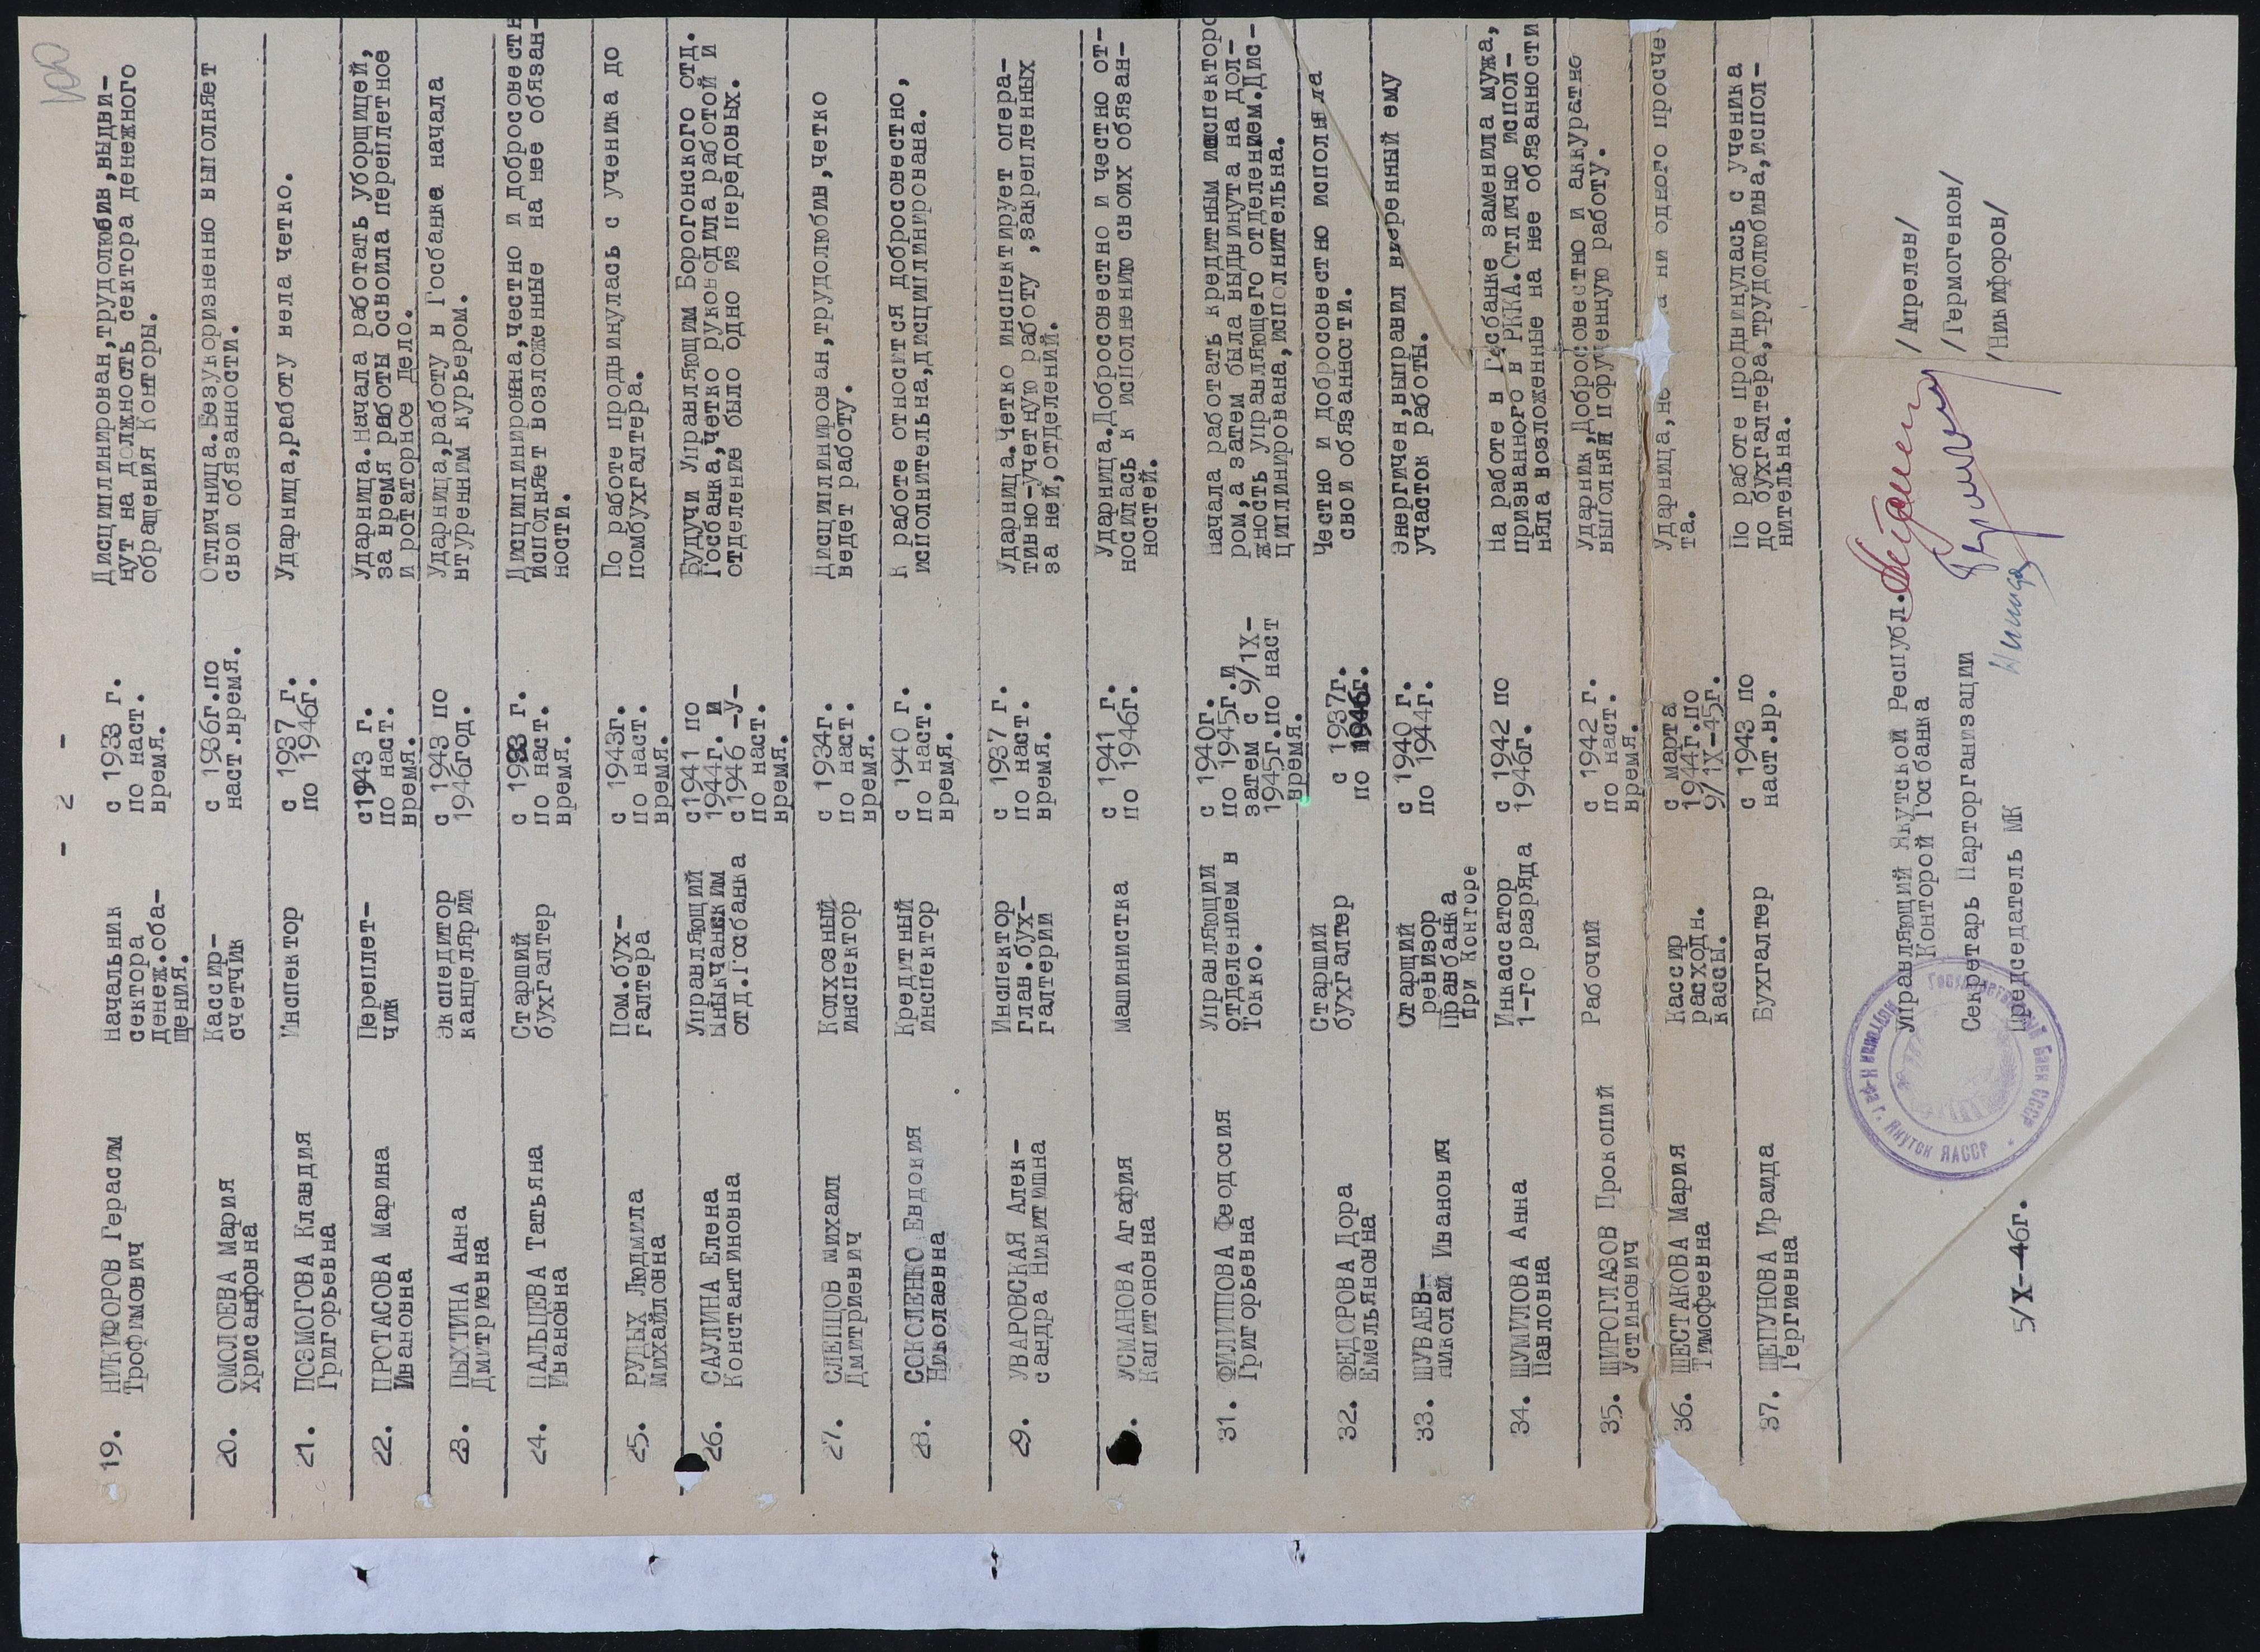 100
- 2 -
19. НИКИФОРОВ Герасим Трофимович
Начальник сектора денеж.обращения.
с 1933 г. по наст. время.
Дисциплинирован,трудолюбив,выдви-
нут на должность сектора денежного
обращения Конторы.
20. ОМОЛОЕВА Мария Хрисанфовна
Кассир-счетчик
с 1936г.по наст.время.
Отличница.Безукоризненно выполняет
свои обязанности.
21. ПОЗМОГОВА Клавдия Григорьевна
Инспектор
с 1937 г. по 1946г.
Ударница,работу вела четко.
22. ПРОТАСОВА Марина Ивановна
Переплет-чик
с1943 г. по наст. время.
Ударница.Начала работать уборщицей,
за время работы освоила переплетное
и ротаторное дело.
23. ПЫХТИНА Анна Дмитриевна
Экспедитор канцелярии
с 1943 по 1946год.
Ударница,работу в Госбанке начала
втуренним курьером.
24. ПАЛЬЦЕВА Татьяна Ивановна
Старший бухгалтер
с 1933 г. по наст. время.
Дисциплинирована,честно и добросовестн
исполняет возложенные на нее обязан-
ности.
25. РУДЫХ Людмила Михайловна
Пом.бух-галтера
с 1943г. по наст. время.
По работе продвинулась с ученика до
помбухгалтера.
26. САУЛИНА Елена Константиновна
Управляющий Ыныкчанским отд.Госбанка
с1941 по 1944г. и с 1946 -у- по наст. время.
Будучи Управляющим Борогонского отд.
Госбанка,четко руководила работой и
отделение было одно из передовых.
27. СЛЕПЦОВ Михаил Дмитриевич
Колхозный инспектор
с 1934г. по наст. время.
Дисциплинирован,трудолюбив,четко
ведет работу.
28. СОКОЛЕНКО Евдокия Николаевна
Кредитный инспектор
с 1940 г. по наст. время.
К работе относится добросовестно,
исполнительна,дисциплинирована.
29. УВАРОВСКАЯ Алек-сандра Никитишна
Инспектор глав.бух-галтерии
с 1937 г. по наст. время.
Ударница.Четко инспектирует опера-
тивно-учетную работу ,закрепленных
за ней,отделений.
УСМАНОВА Агафия Капитоновна
машинистка
с 1941 г. по 1946г.
Ударница.Добросовестно и честно от-
носилась к исполнению своих обязан-
ностей.
31. ФИЛИППОВА Феодосия Григорьевна
Управляющий отделением в Токко.
с 1940г. по 1945г.и затем с 9/1Х-1945г.по наст время.
Начала работать кредитным инспекторо
ром,а затем была выдвинута на дол-
жность управляющего отделением.Дис-
циплинирована,исполнительна.
32. ФЕДОРОВА Дора Емельяновна
Старший бухгалтер
с 1937г. по 1946г.
Честно и добросовестно исполняла
свои обязанности.
33. ШУВАЕВ- Николай Иванович
Старщий ревизор Правбанка при Конторе
с 1940 г. по 1944г.
Энергичен,выправил вверенный ему
участок работы.
34. ШУМИЛОВА Анна Павловна
Инкассатор 1-го разряда
с 1942 по 1946г.
На работе в Госбанке заменила мужа,
призванного в РККА.Отлично испол-
няла возложенные на нее обязанности
35. ШИРОГЛАЗОВ Прокопий Устинович
Рабочий
с 1942 г. по наст. время.
Ударник,Добросовестно и аккуратно
выполняя порученную работу.
36. ШЕСТАКОВА Мария Тимофеевна
Кассир расходн. кассы.
с марта 1944г.по 9/1Х-45г.
Ударница, ни одного просче
та.
37. ЩЕПУНОВА Ираида Гергиевна
Бухгалтер
с 1943 по наст.вр.
По работе продвинулась с ученика
до бухгалтера,трудолюбива,испол-
нительна.
Управляющий Якутской Республ.
Конторой Госбанка /Апрелев/
Секретарь Парторганизации /Гермогенов/
Председатель МК /Никифоров/
5/Х-46г.
Якутск ЯАССР